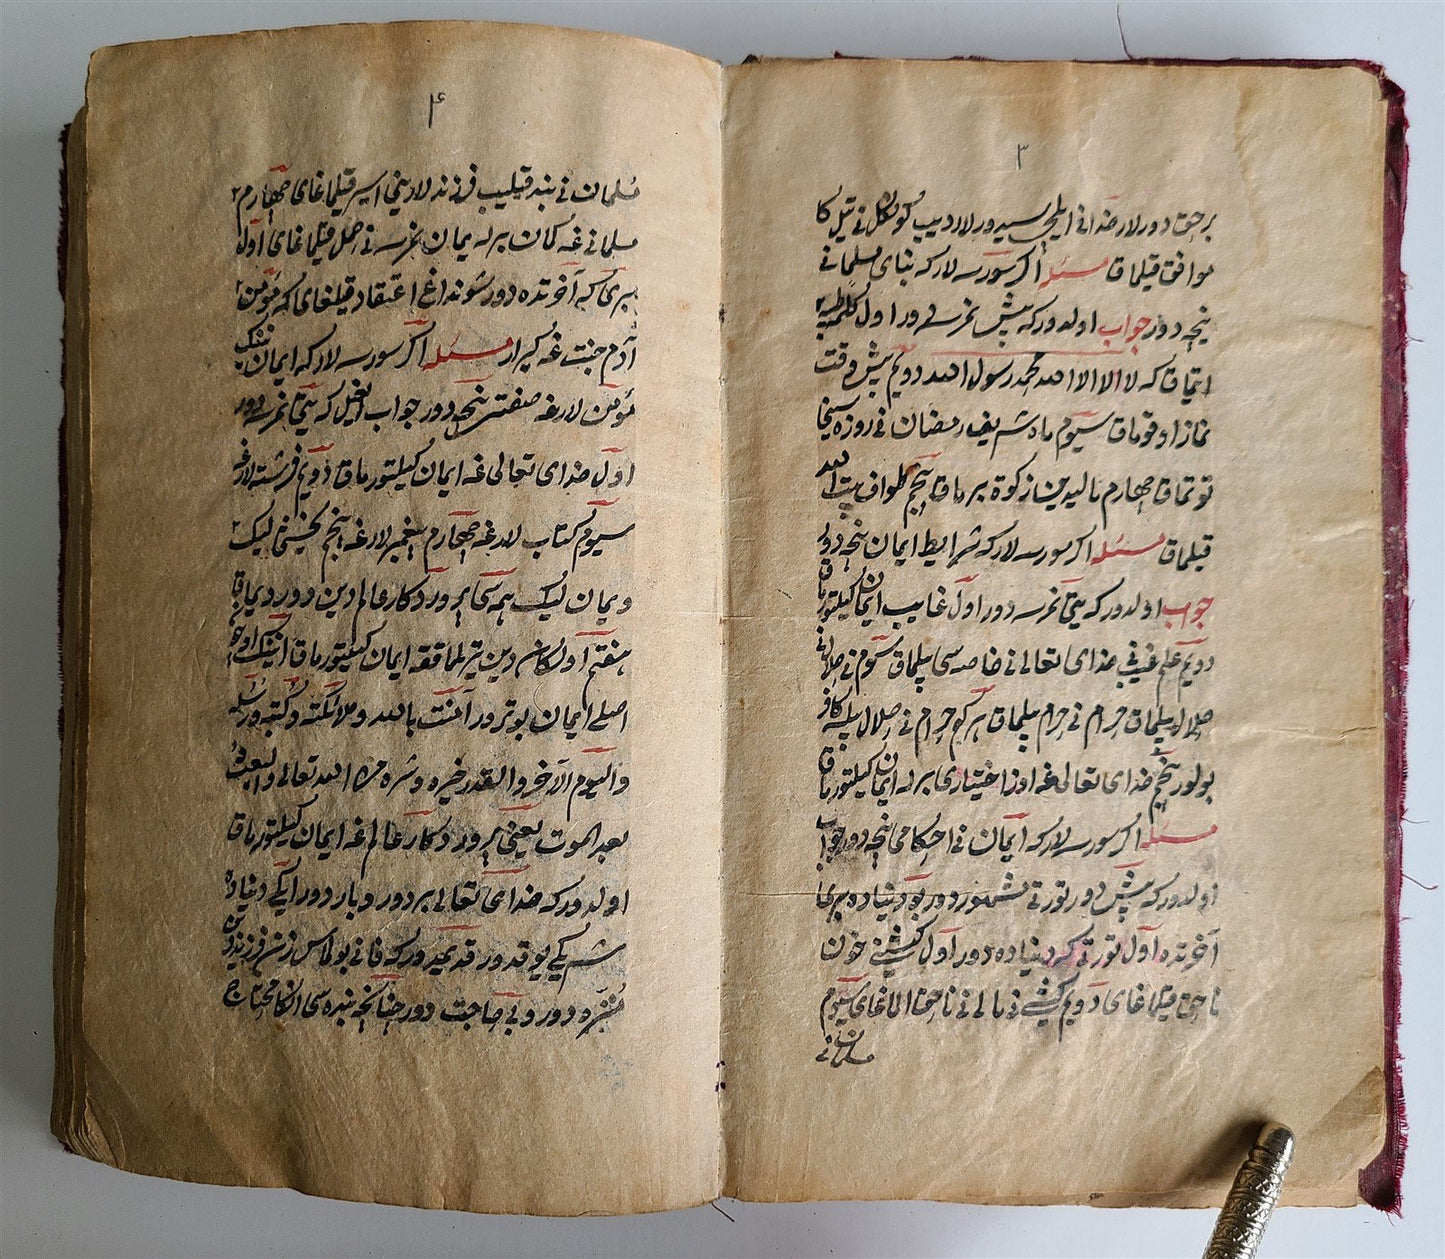 ۳
برحق دورلار خدانی ایلچیسی دورلار دیب کونکل نی تیل کا
موافق قیلماق مسئله اکر سورسه لار که بنای مسلمانی
نیجه دور جواب اولدور که بیش نرسه دور اول کلمه طیبه
ایتماق که لا اله الا الله محمد رسول الله دویم بیش وقت
نماز اوقوماق سیوم ماه شریف رمضان نی روزه سینی
توتماق چهارم مالیدین زکوة بیرماق پنجم طواف بیت الله
قیلماق مسئله اکر سورسه لار که شرایط ایمان نیجه دور
جواب اولدور که ییتی نرسه دور اول غایب ایمان کیلتورماق
دویم علم غیب خدای تعالی نی خاصه سی بیلماق سیوم نی حلال نی
حلال بیلماق حرام نی حرام بیلماق هر کم حرام نی حلال بیلسه کافر
بولور پنجم خدای تعالی غه اوز اختیاری بیرله ایمان کیلتورماق
مسئله اکر سورسه لار که ایمان نی احکامی نیجه دور جواب
اولدور که بیش دور تورتی دور بو دنیاده بری
آخرتده اول تورتی که دنیاده دور اول کیشینی خون
ناحق قیلماغای دویم کیشی نی مالی نی ناحق الماغای سیوم
مسلمان نی
۴
مسلمان نی بند قیلیب فرزندلارینی اسیر قیلماغای چهارم
مسلمانی غه کمان بیرله یمان نرسه نی حمل قیلماغای اول
بری که آخرتده دور شونداغ اعتقاد قیلغای که مؤمن
آدم جنت غه کیرار مسئله اکر سورسه لار که ایمان ننک
مؤمن لارغه صفتی نیجه دور جواب ایغیل که ییتی نرسه دور
اول خدای تعالی غه ایمان کیلتورماق دویم فرشته لارغه
سیوم کتاب لارغه چهارم پیغمبر لارغه پنجم یخشی لیک
و یمان لیک همه سی پروردکار عالم دین دور دیماق
هفتم آولکان دین تیرلماققه ایمان کیلتورماق
اصلی ایمان بو ترور آمنت بالله و ملائکته و کتبه و رسله
والیوم الآخر والقدر خیره و شره من الله تعالی والبعث
بعد الموت یعنی پروردکار عالم غه ایمان کیلتورماق
اولدور که خدای تعالی بر دور و بار دور ایکی دنیاده
شریکی یوقدور قدیمدور که فانی بولماس زن فرزنددین
منزه دور و بی حاجت دور چنانچه بنده سی انکا محتاج